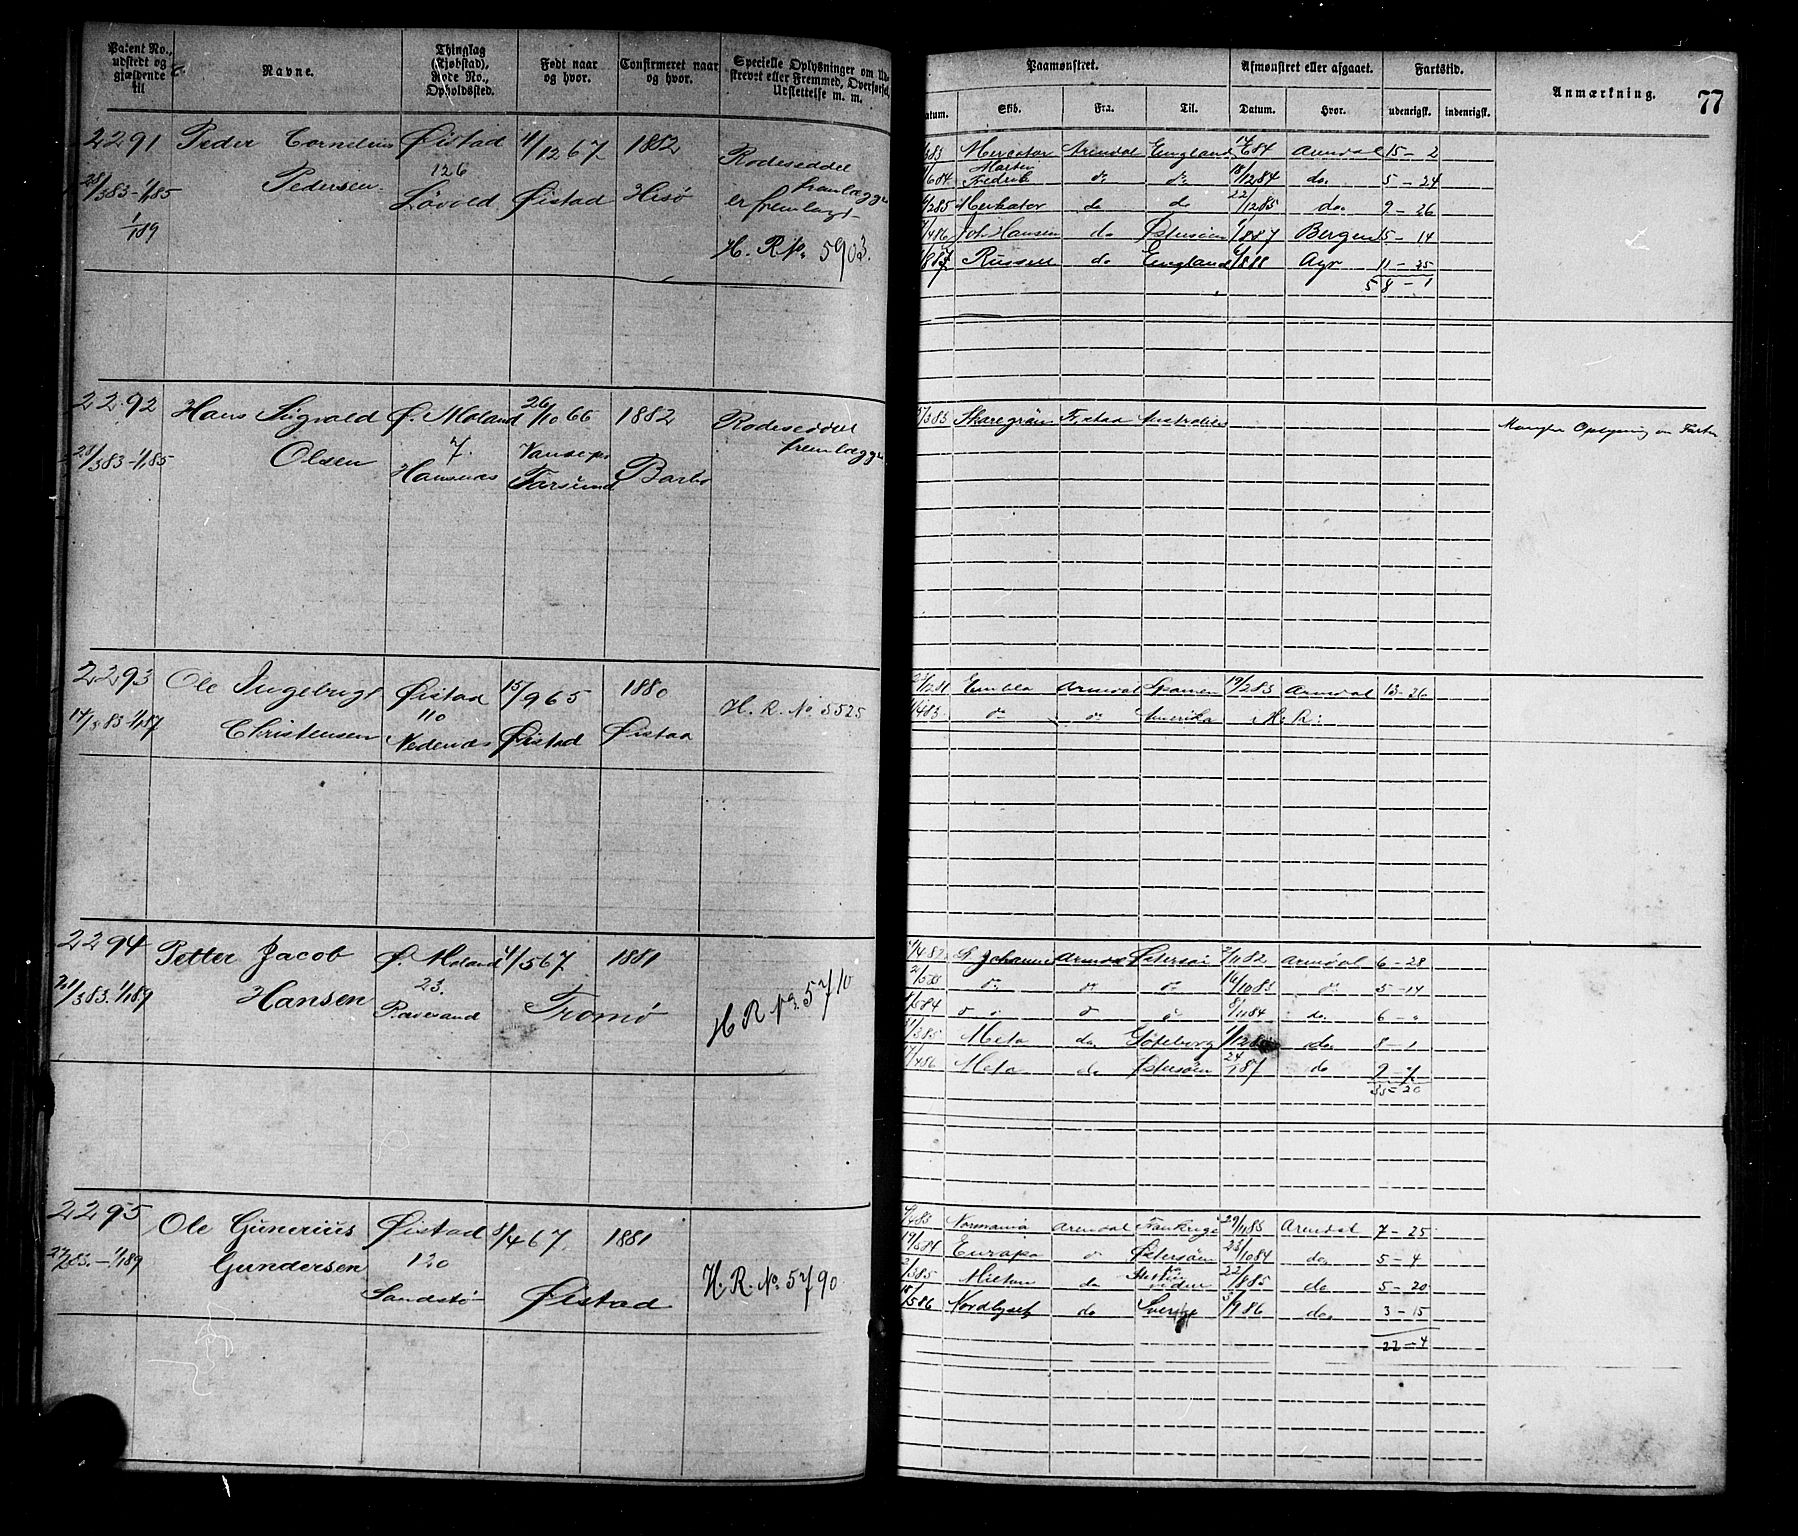 Patent No., udstedt og gjældende til
Navne.
Thinglag (Kjøbstad), Rode No., Opholdssted.
Født naar og hvor.
Confirmeret naar og hvor.
Specielle Oplysninger om Udskrevet eller Fremmed, Overførsel, Udslettelse m. m.
Paamønstret.
Afmønstret eller afgaaet.
Fartstid.
Anmærkning.
77
Datum.
Skib.
Fra.
Til.
Datum.
Hvor.
udenrigsk.
indenrigsk.
2291 Peder Cornelius Øistad 11/12 67 1882 Rodeseddel
Pedersen 126 fremlægges
28/3 83 - 1/1 85 Løvold Øistad Hisø er fremlagt
1/1 89
H. R. No. 5903.
Mercator Arendal England Arendal 15 - 2
6 84 Martin Fredrik do do 18/12 84 do 5 - 24
2 85 Merkator do do 22/12 85 do 9 - 26
4 86 Joh. Hansen do Østersøen 1 87 Bergen 5 - 14
Russell do England 1 88 Ayr 11 - 25
58 - 1
2292 Hans Sigvald Ø. Moland 26/10 66 1882 Rodeseddel
28/3 83 - 1/1 85 Olsen 7. Vanse fremlægges
Farsund Barbo
3 83 Fr.stad Australien
Mangler Oplysning om Farten
2293 Ole Ingebrigt Øistad 15/9 65 1880 H. R. No. 5525
110
83 - 1/1 87 Christensen Nedenes Øistad Øistad
Embla Arendal Spanien 19/2 83 Arendal 13 - 26
4 83 do do Amerika H. R:
2294 Petter Jacob Ø. Moland 4/5 67 1881
3 83 - 1/1 89 Hansen 23. Tromø H R No. 5710
Ravesand
4 82 St. Johannes Arendal Østersøen 2/11 82 Arendal 6 - 28
do do do 16/10 83 do 5 - 14
84 do do do 8/11 84 do 6 - "
85 Meta do Gøteborg do 8 - 1
4 86 Meta do Østersøen 24/1 87 do 9 -
35 - 20
2295 Ole Gunerius Øistad 8/4 67 1881
83. - 1/1 89 Gundersen 120 H. R. No. 5790
Sandstø Øistad
4 83 Normania Arendal Frankrige 29/11 83 Arendal 7 - 25
84 Europa do Østersøen 23/10 84 do 5 - 4
3 85 do 22/8 85 do 5 - 20
5 86 Nordlyset do Sverige 86 do 3 - 15
22 - 4